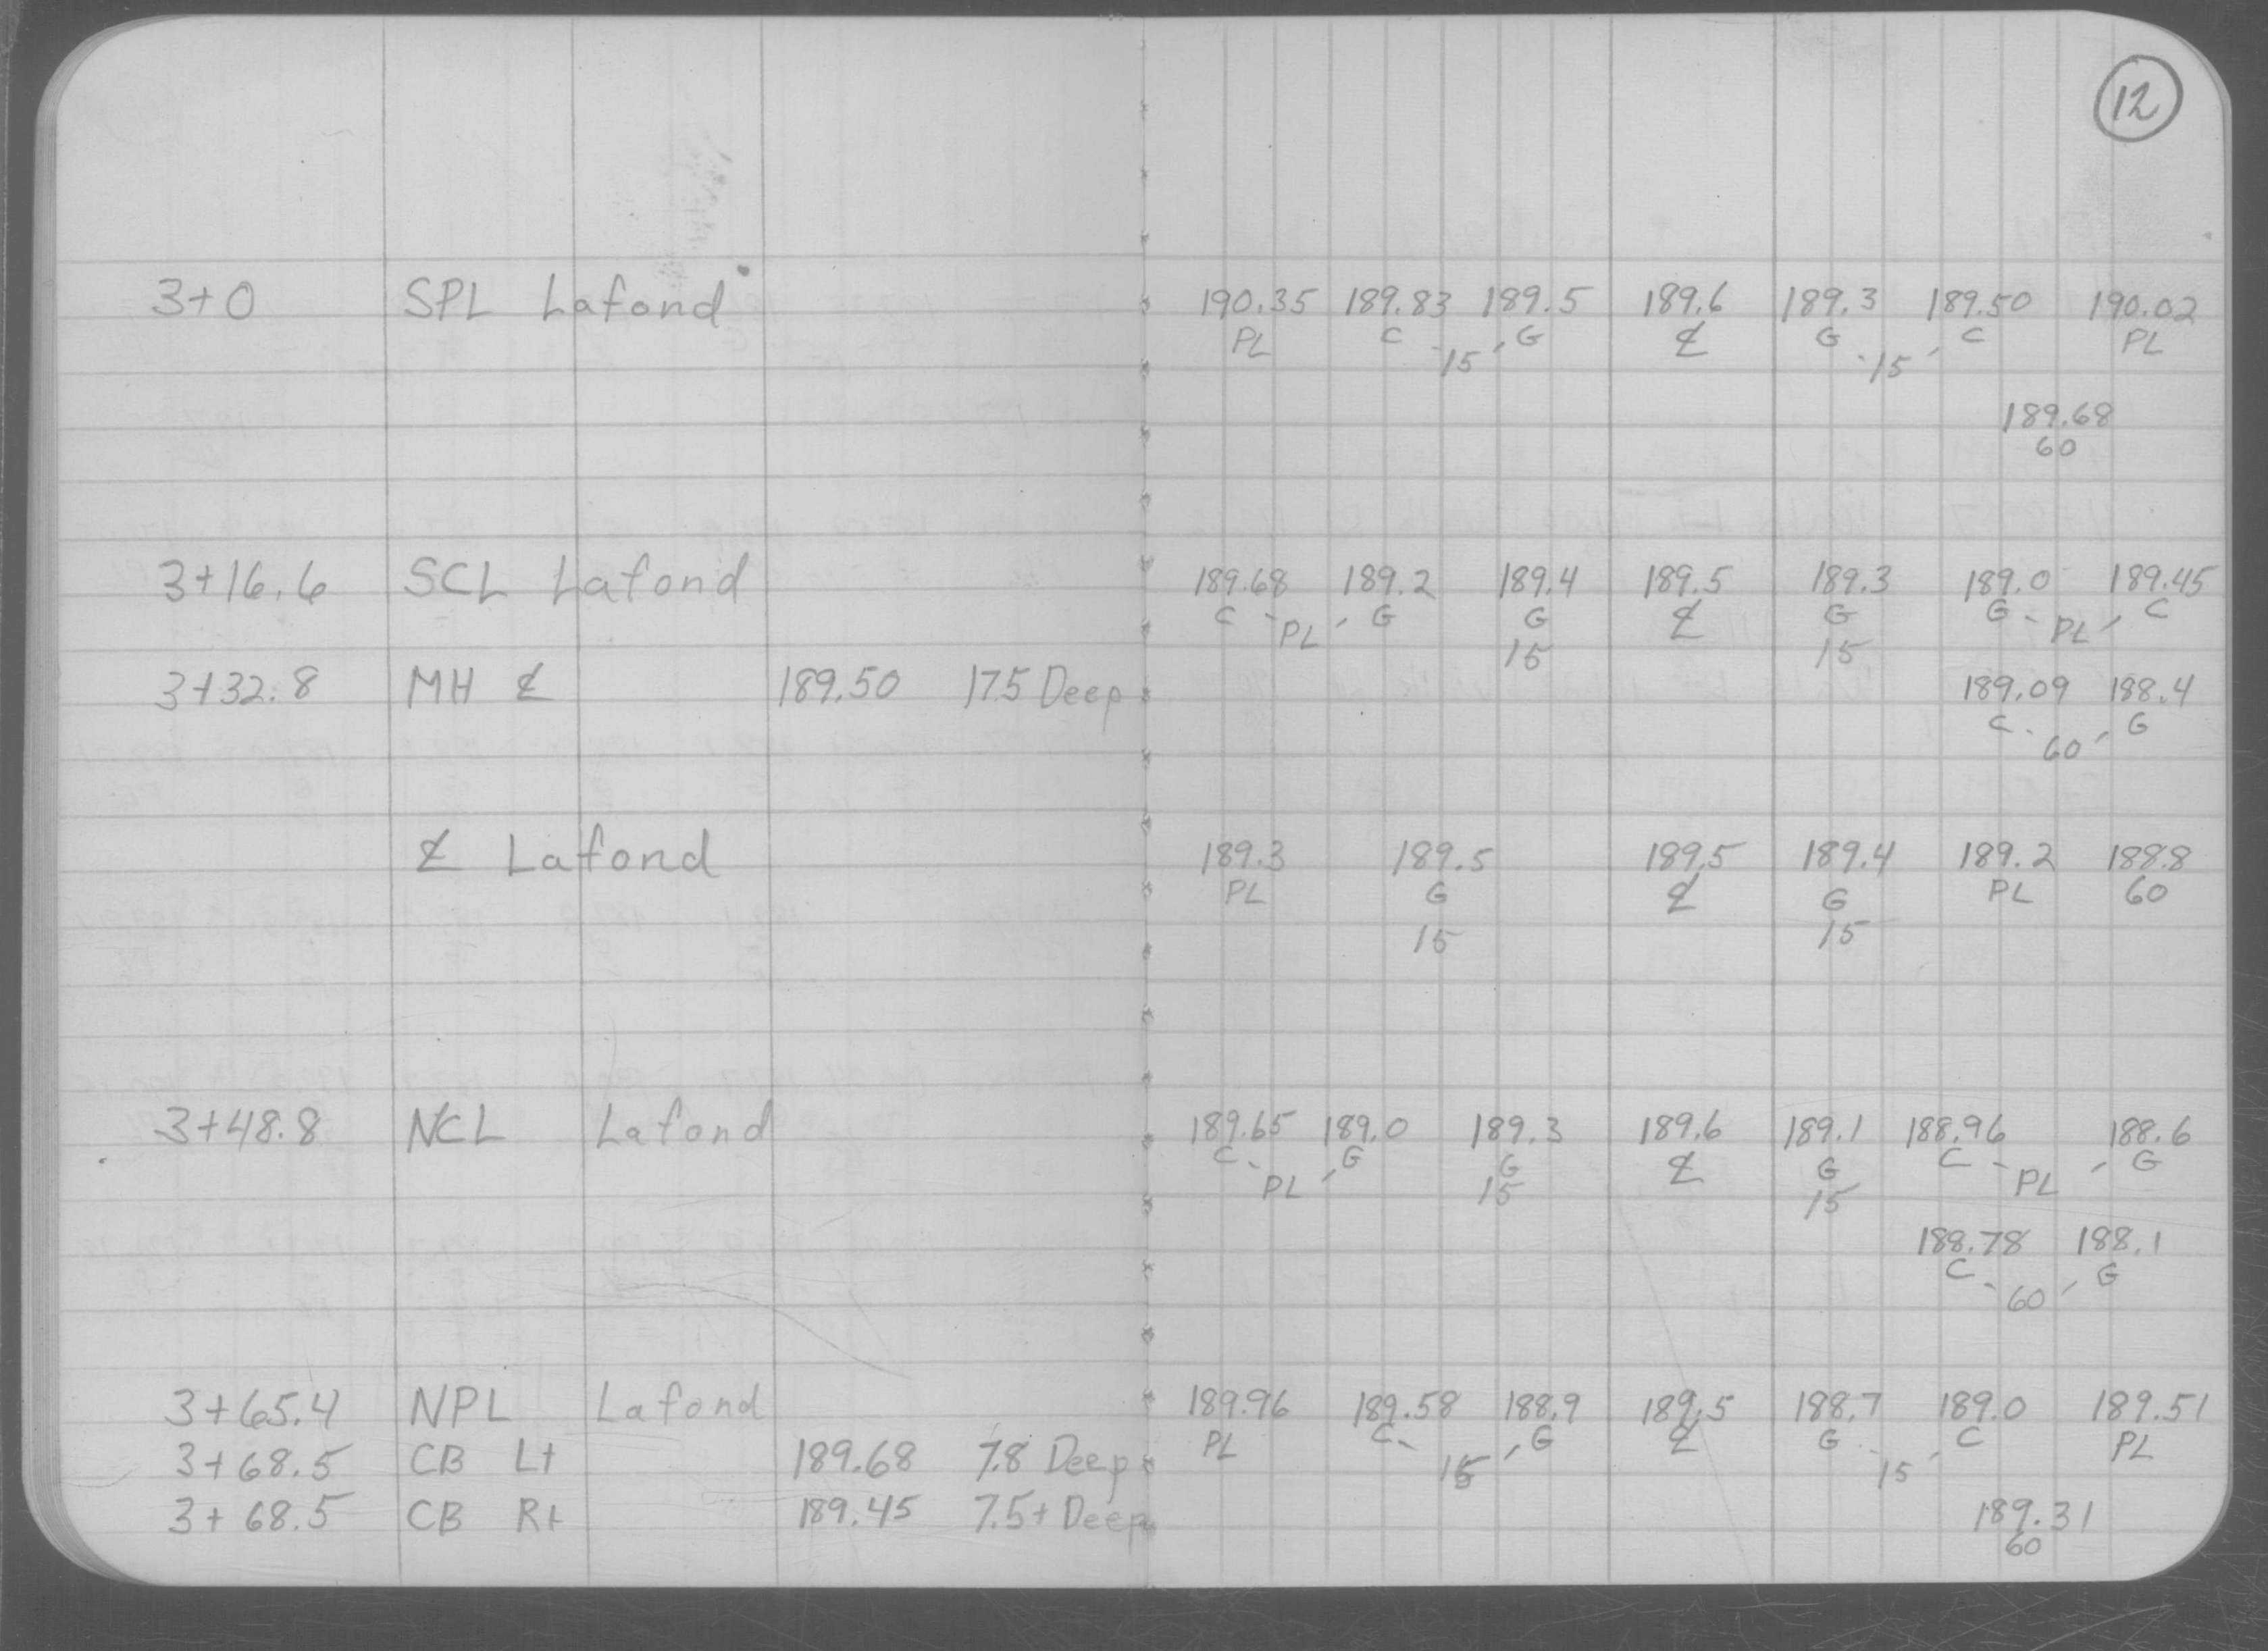 12
3+0 SPL Lafond 190.35 189.83 189.5 189.6 189.3 189.50 190.02
PL C - 15 - G ℄ G - 15 - C PL
189.68
60
3+16.6 SCL Lafond 189.68 189.2 189.4 189.5 189.3 189.0 189.45
C - PL - G G ℄ G G - PL - C
15 15
3+32.8 MH ℄ 189.50 17.5 Deep 189.09 188.4
C - 60 - G
℄ Lafond 189.3 189.5 189.5 189.4 189.2 188.8
PL G ℄ G PL 60
15 15
3+48.8 NCL Lafond 189.65 189.0 189.3 189.6 189.1 188.96 188.6
C - PL - G G ℄ G C - PL - G
15 15
188.78 188.1
C - 60 - G
3+65.4 NPL Lafond 189.96 189.58 188.9 189.5 188.7 189.0 189.51
PL C - 15 - G ℄ G - 15 - C PL
3+68.5 CB Lt 189.68 7.8 Deep
3+68.5 CB Rt 189.45 7.5+ Deep 189.31
60